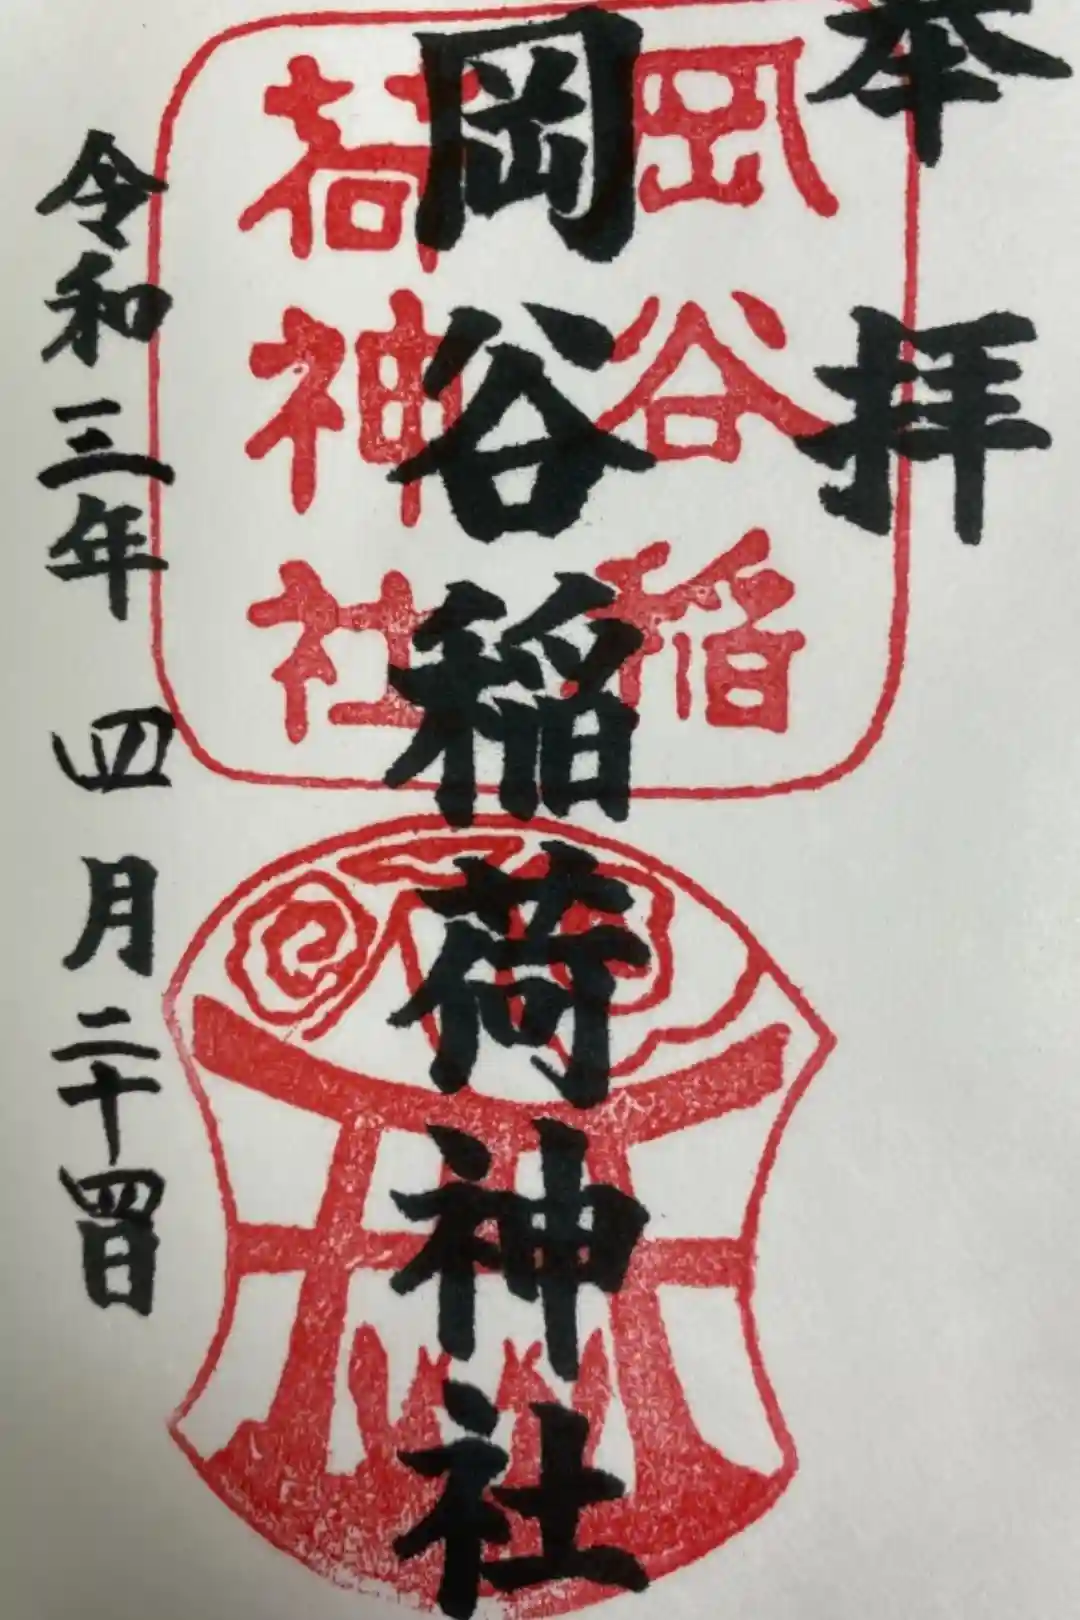 奉拝
岡谷稲荷神社
岡谷稲
荷神社
令和三年四月二十四日